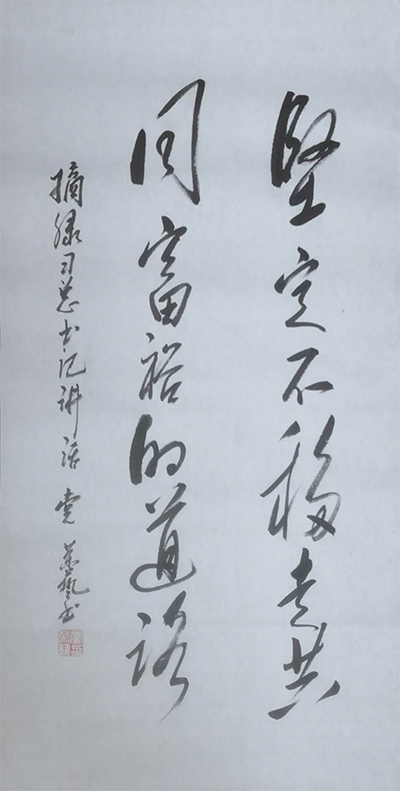 坚定不移走共
同富裕的道路
摘录习总书记讲话 党 英艺书